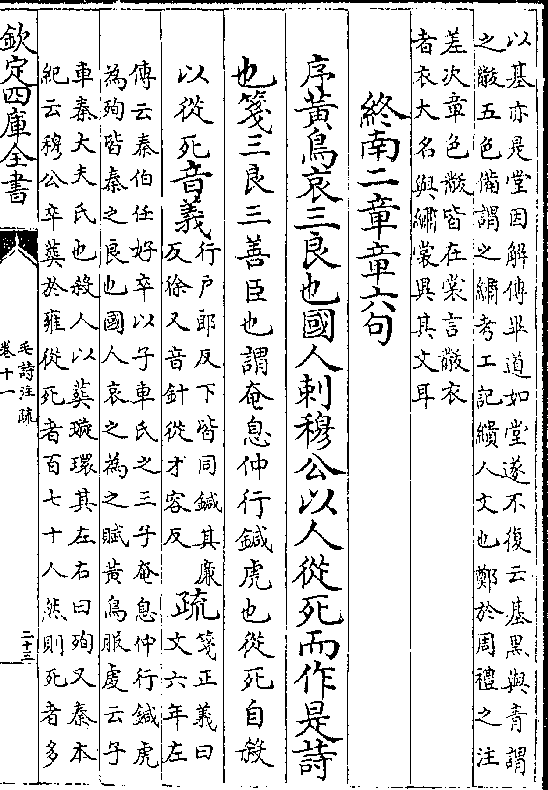 以基亦是堂因解傳畢道如堂遂不復云基黑與青謂
之黻五色備謂之繡考工記繢人文也鄭於周禮之注
差次章色黻皆在裳言黻衣
者衣大名與繡裳異其文耳
終南二章章六句
序黃鳥哀三良也國人刺穆公以人從死而作是詩
也箋三良三善臣也謂奄息仲行鍼虎也從死自殺
以從死音義行戶郎反下皆同鍼其廉
反徐又音針從才容反疏箋正義曰
文六年左
傳云秦伯任好卒以子車氏之三子奄息仲行鍼虎
為殉皆秦之良也國人哀之為之賦黃鳥服虔云子
車秦大夫氏也殺人以葬璇環其左右曰殉又秦本
紀云穆公卒葬於雍從死者百七十人然則死者多
欽定四庫全書
毛詩注疏
卷十一
二十三